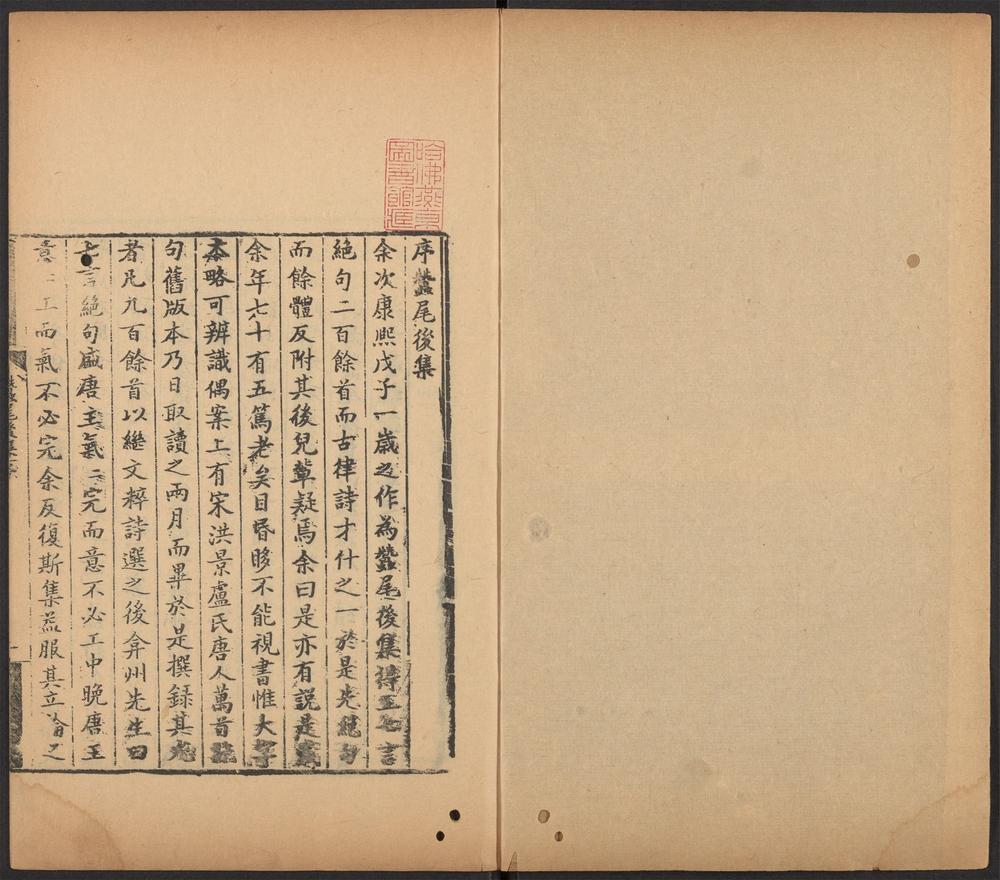 哈佛燕京
圖書館藏
序蠶尾後集
余次康熙戊子一歲之作為蠶尾後集得五七言
絕句二百餘首而古律詩才什之一於是先絕句
而餘體反附其後兒輩疑焉余曰是亦有說是歲
余年七十有五篤老矣目昏眵不能視書惟大字
本略可辨識偶案上有宋洪景盧氏唐人萬首絕
句舊版本乃日取讀之兩月而畢於是撰錄其尤
者凡九百餘首以繼文粹詩選之後弇州先生曰
七言絕句盛唐主氣二完而意不必工中晚唐主
意二工而氣不必完余反復斯集益服其立論之